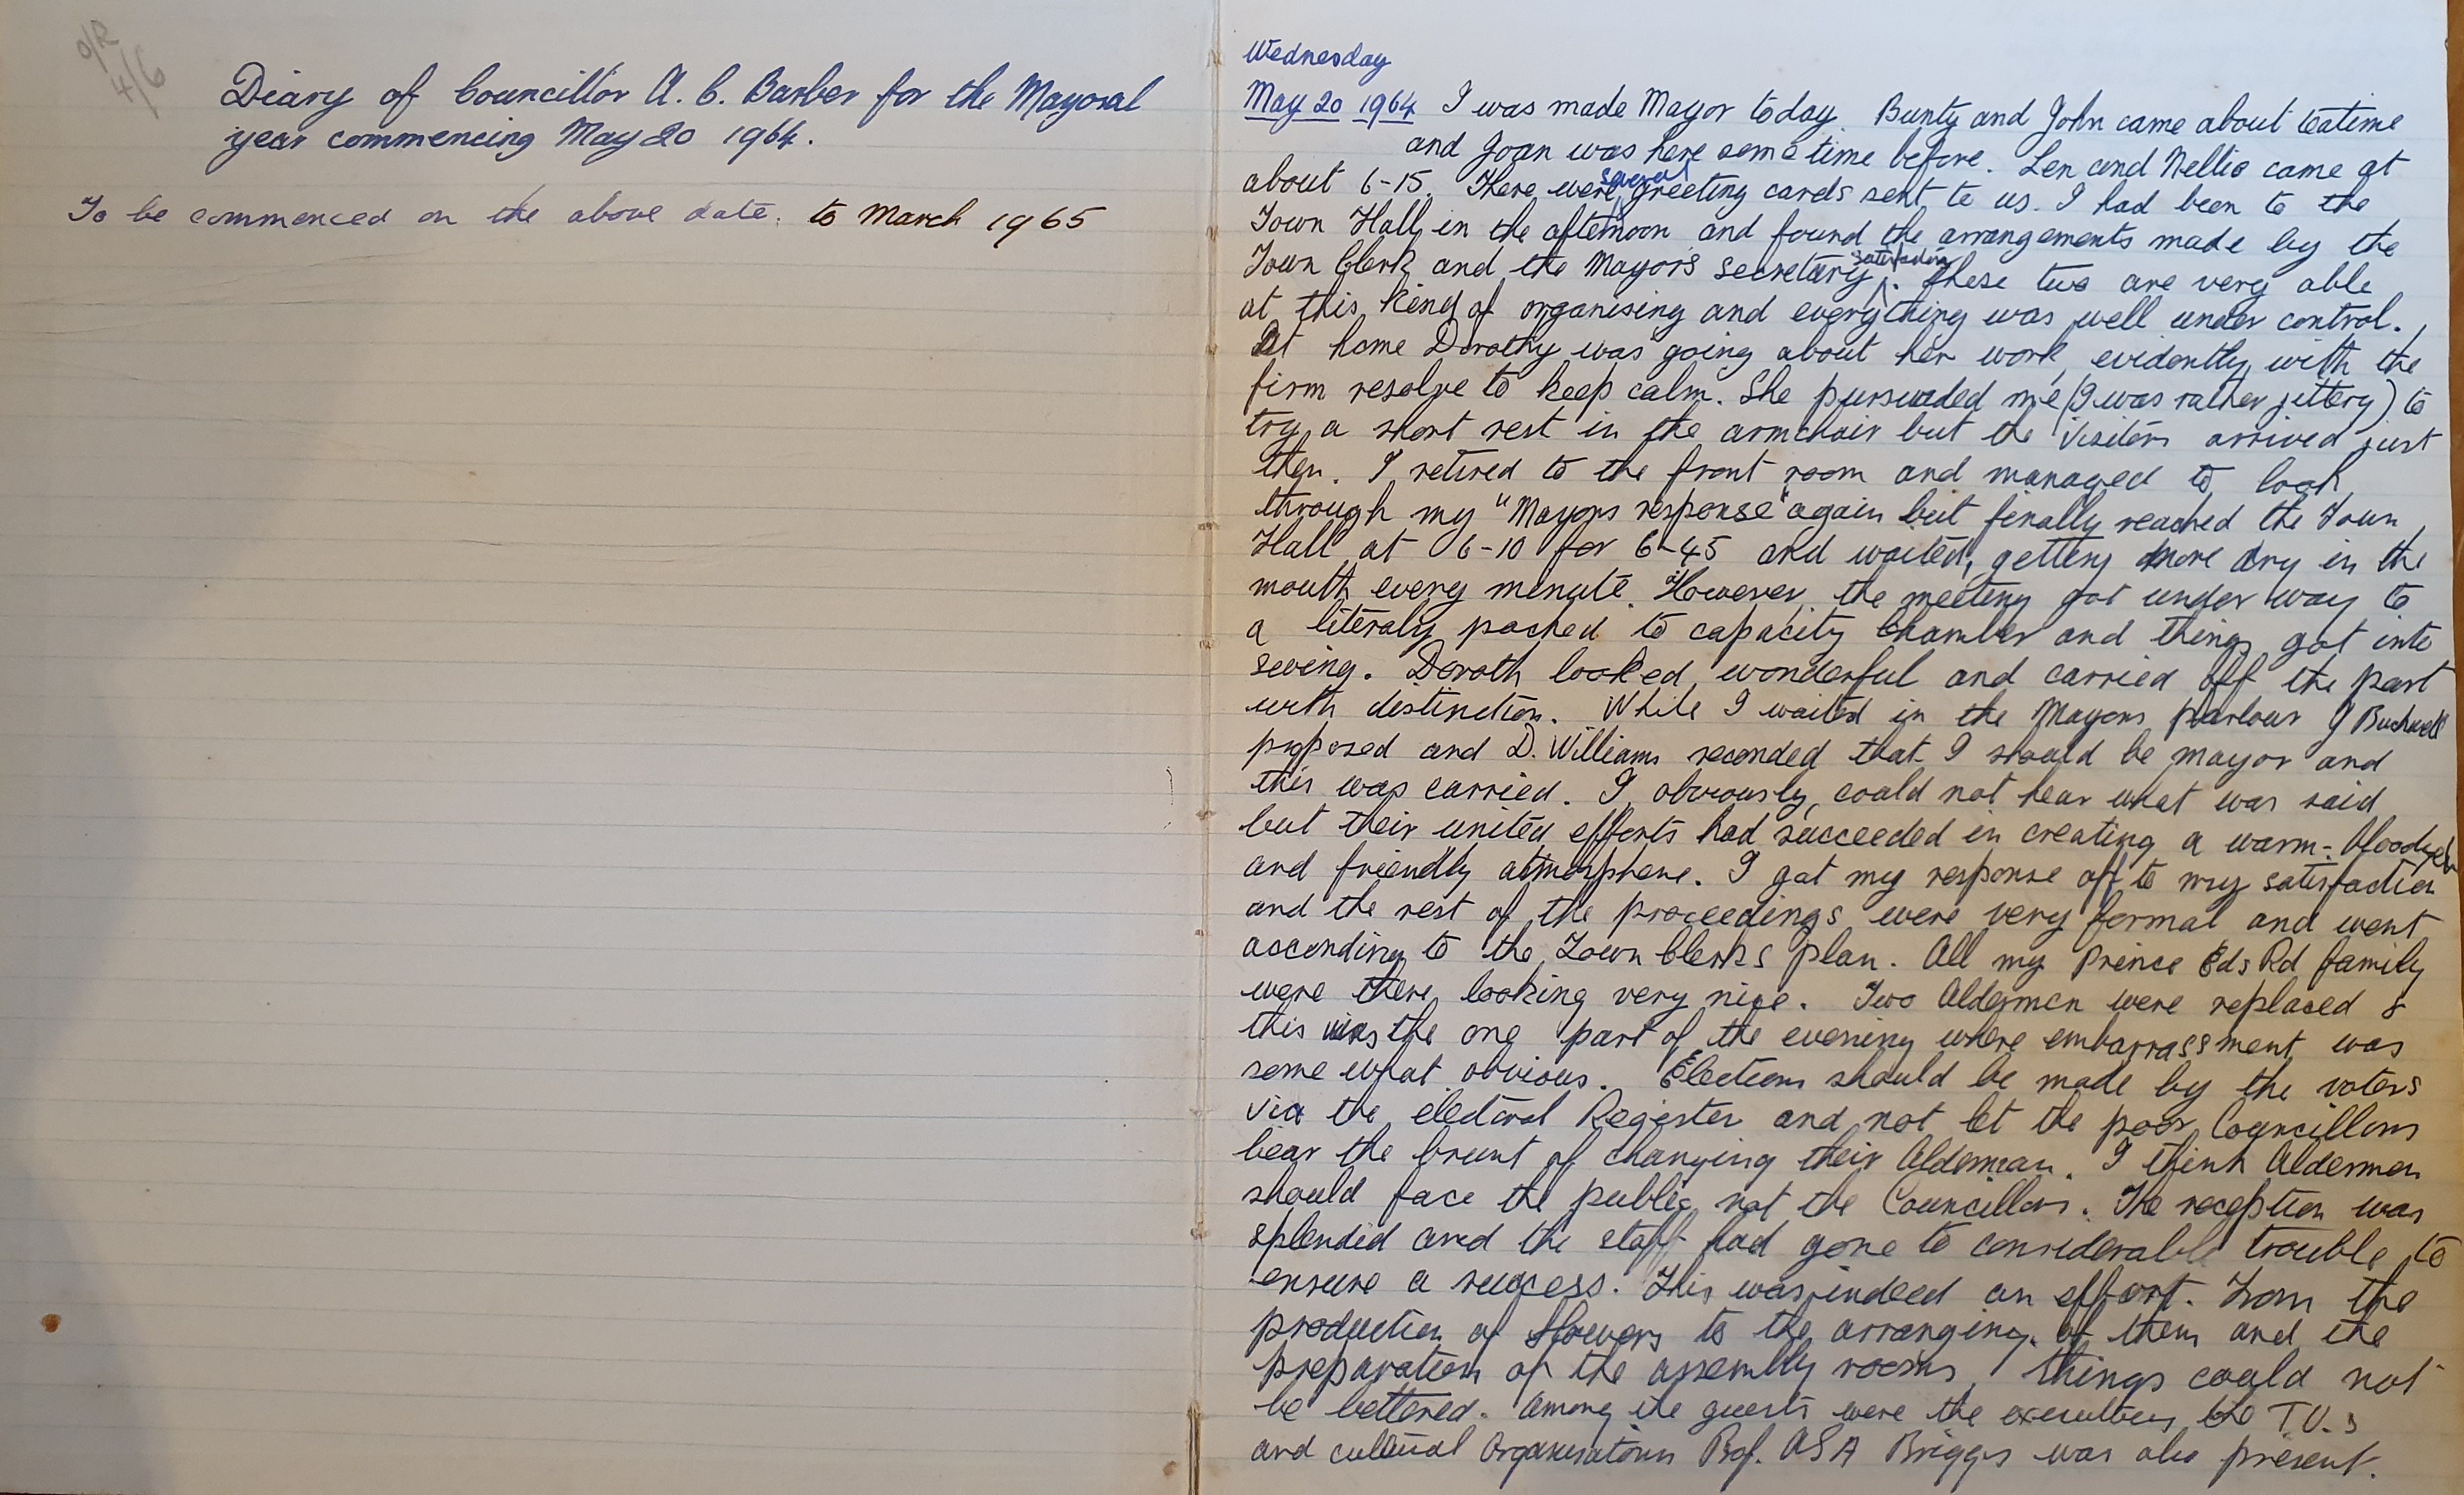 O/R
4/6
Diary of Councillor A. C. Barber for the Mayoral
year commencing May 20 1964.
To be commenced on the above date. to March 1965
Wednesday
May 20 1964 I was made Mayor today. Bunty and John came about teatime
and Joan was here some time before. Len and Nellie came at
about 6-15. There were several greeting cards sent to us. I had been to the
Town Hall in the afternoon and found the arrangements made by the
Town Clerk and the Mayors secretary satisfactory. These two are very able
at this kind of organising and everything was well under control.
At home Dorothy was going about her work, evidently with the
firm resolve to keep calm. She pursuaded me (I was rather jittery) to
try a short rest in the armchair but the visitors arrived just
then. I retired to the front room and managed to look
through my "Mayors response" again but finally reached the Town
Hall at 6-10 for 6-45 and waited, getting more dry in the
mouth every minute. However, the meeting got under way to
a literaly packed to capacity Chamber and things got into
swing. Doroth looked wonderful and carried off the part
with distinction. While I waited in the Mayors parlour G
proposed and D. Williams seconded that I should be mayor and
this was carried. I, obviously, could not hear what was said
but their united efforts had succeeded in creating a warm-blooded
and friendly atmosphere. I got my response off to my satisfaction
and the rest of the proceedings were very formal and went
according to the Town Clerks plan. All my Prince Eds Rd family
were there looking very nice. Two Aldermen were replaced &
this was the one part of the evening where embarrassment was
some what obvious. Elections should be made by the voters
via the electoral Register and not let the poor Councillors
bear the brunt of changing their Alderman. I think Aldermen
should face the public not the Councillors. The reception was
splendid and the staff had gone to considerable trouble to
ensure a success. This was indeed an effort. From the
production of flowers to the arranging of them and the
preparation of the assembly rooms, things could not
be bettered. Among the guests were the executives, the T.U.s
and cultural Organisations Prof. ASA Briggs was also present.